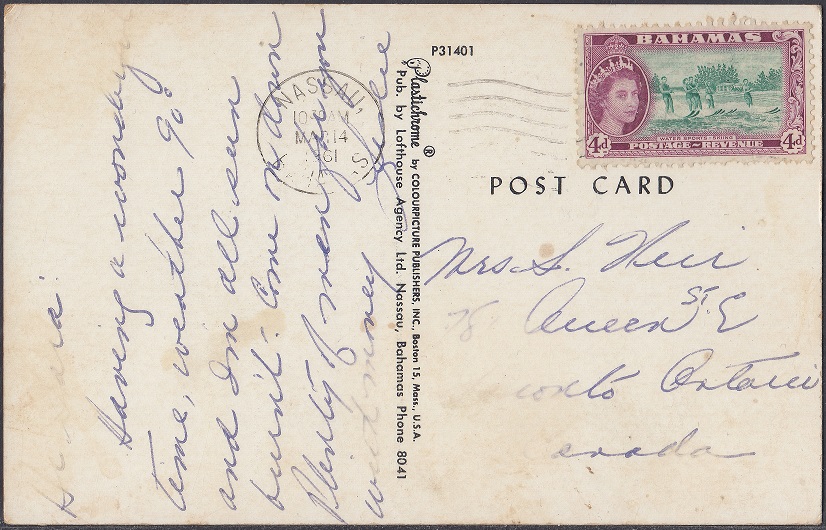 Having a wonderful
time, weather 90°
and I'm all sun
burnt. Come on down
Plenty of men for you
with money
P31401
Plastichrome ® by COLOURPICTURE PUBLISHERS, INC., Boston 15, Mass., U.S.A.
Pub. by Lofthouse Agency Ltd. Nassau, Bahamas Phone 8041
NASSAU,
AM
MAR 14
61
BAHAMAS
4d
WATER SPORTS-SKIING
4d
POSTAGE~REVENUE
POST CARD
Mrs S. Weir
78 Queen St. E
onto Ontario
anada